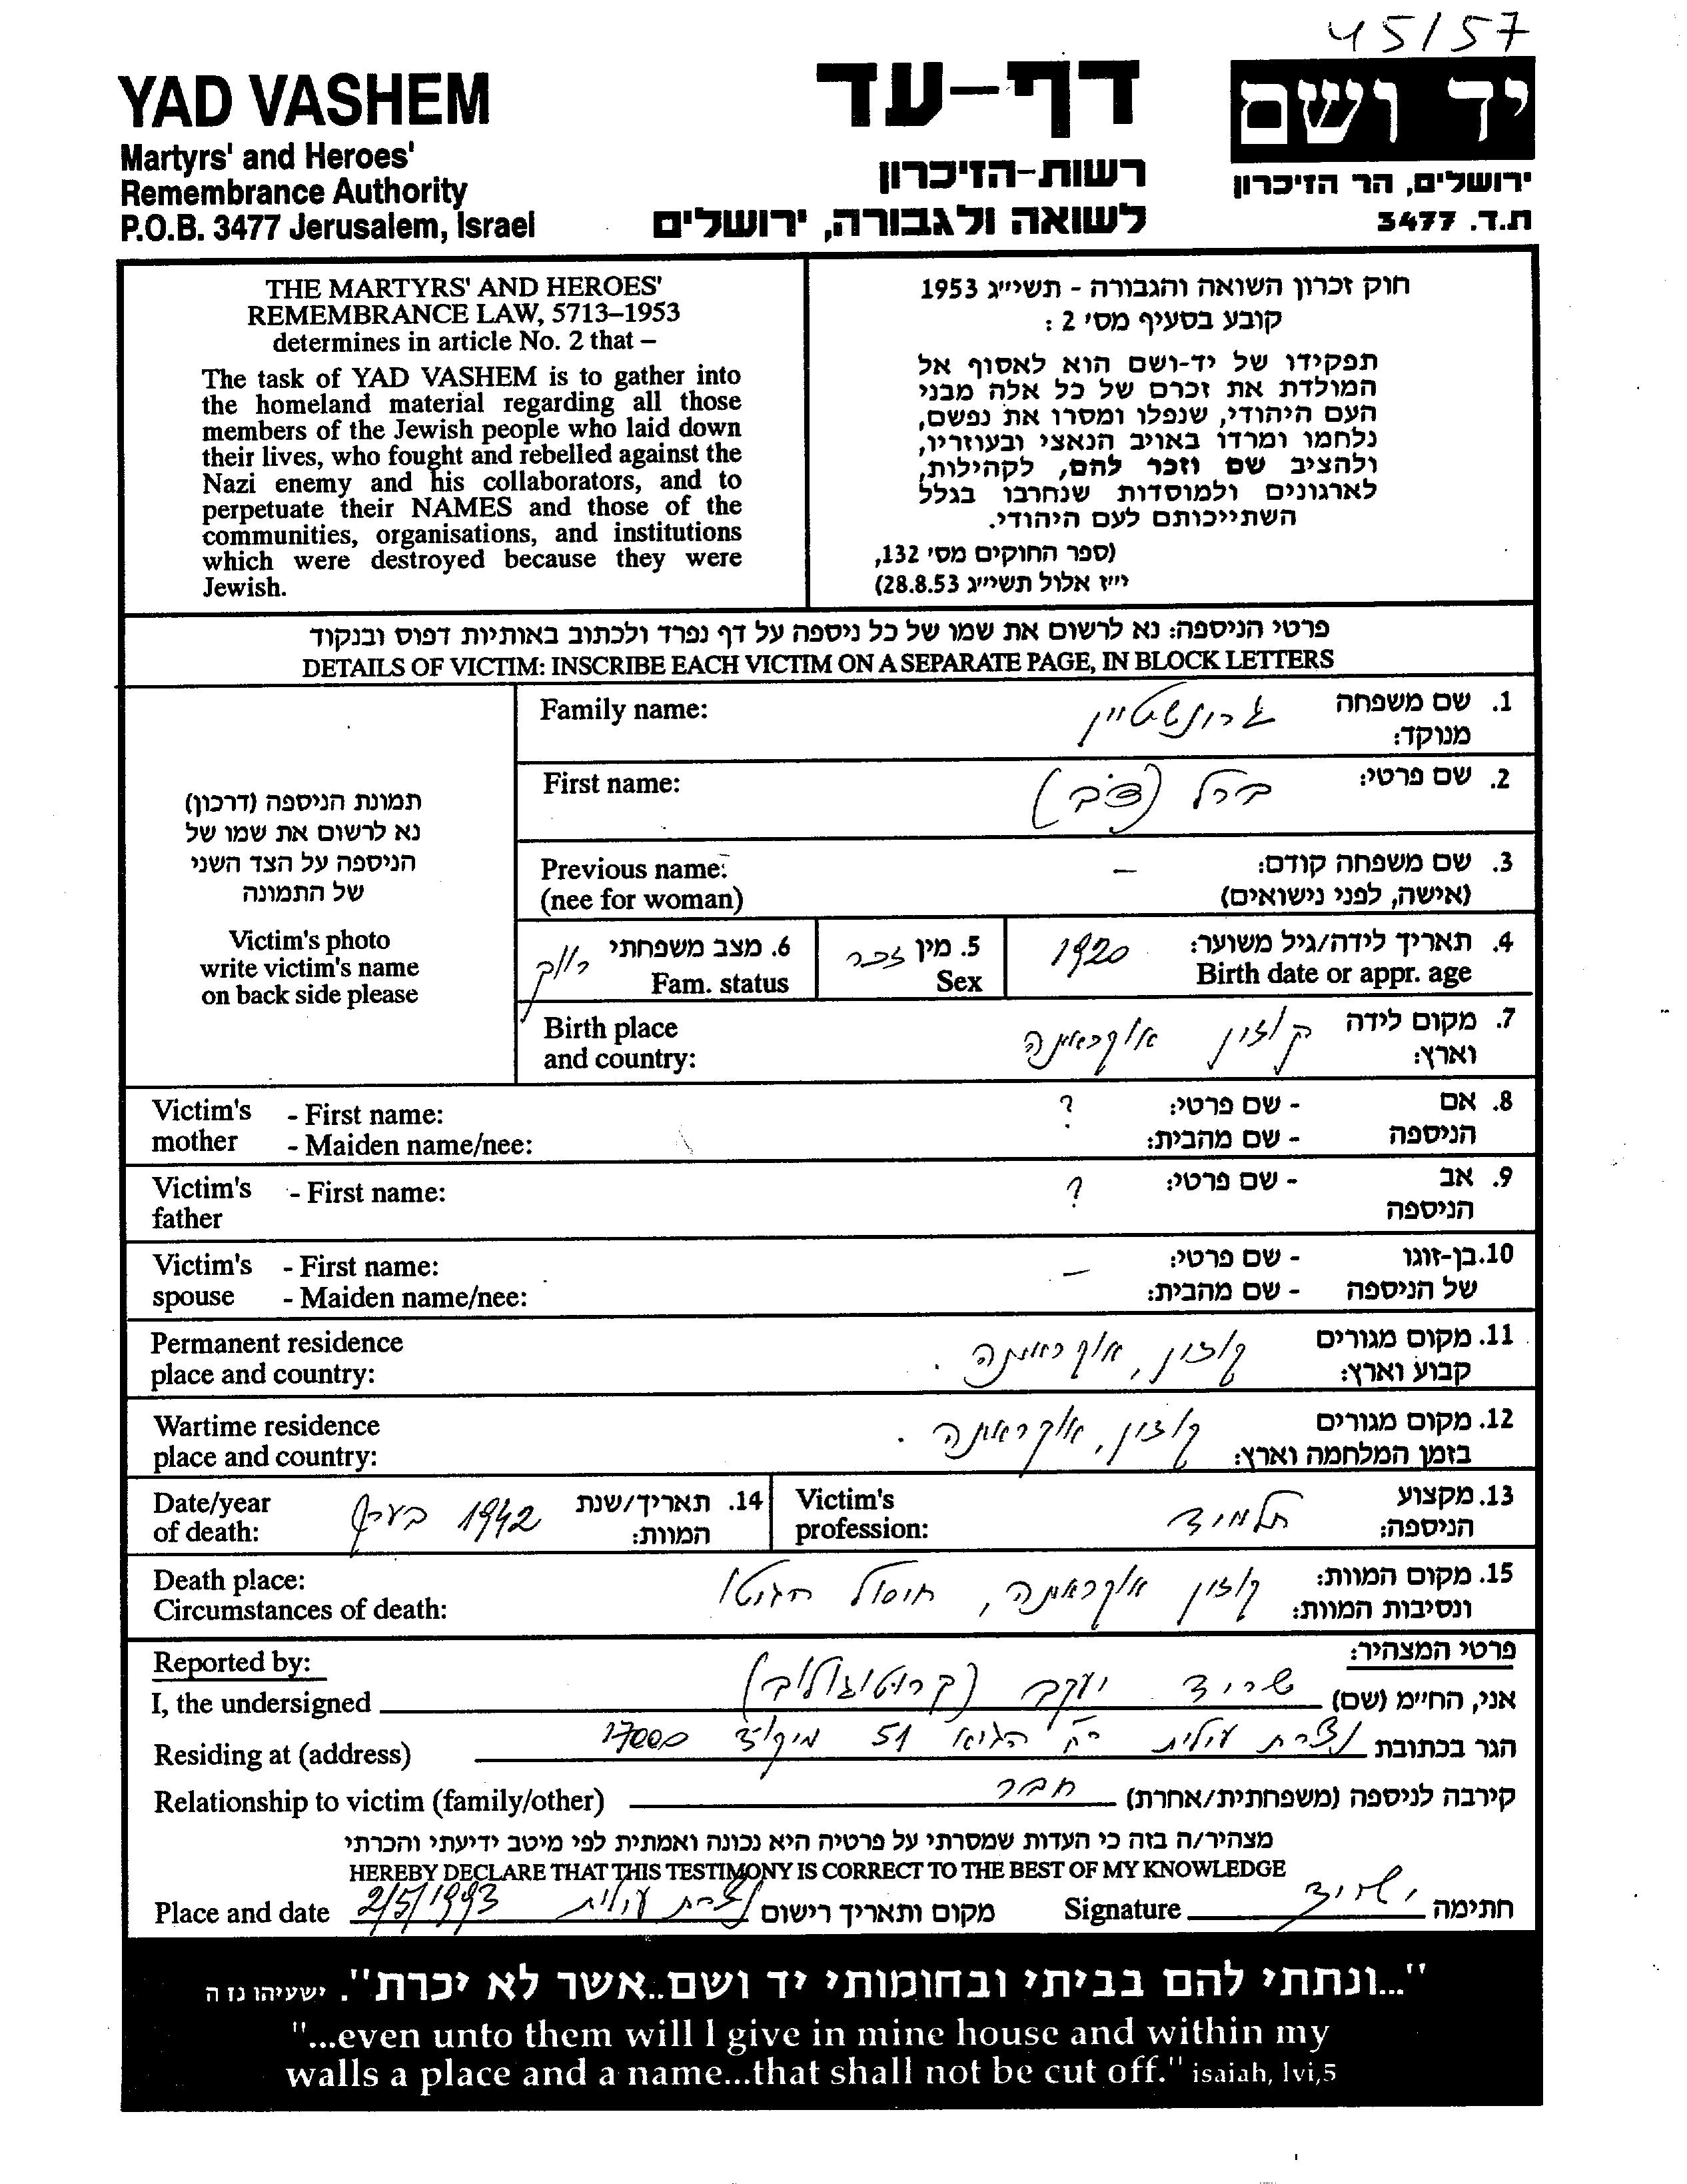 45/57
YAD VASHEM
Martyrs' and Heroes'
Remembrance Authority
P.O.B. 3477 Jerusalem, Israel
דף-עד
רשות-הזיכרון
לשואה ולגבורה, ירושלים
יד ושם
ירושלים, הר הזיכרון
ת.ד. 3477
THE MARTYRS' AND HEROES'
REMEMBRANCE LAW, 5713–1953
determines in article No. 2 that –
The task of YAD VASHEM is to gather into
the homeland material regarding all those
members of the Jewish people who laid down
their lives, who fought and rebelled against the
Nazi enemy and his collaborators, and to
perpetuate their NAMES and those of the
communities, organisations, and institutions
which were destroyed because they were
Jewish.
חוק זכרון השואה והגבורה - תשי״ג 1953
קובע בסעיף מס׳ 2 :
תפקידו של יד-ושם הוא לאסוף אל
המולדת את זכרם של כל אלה מבני
העם היהודי, שנפלו ומסרו את נפשם,
נלחמו ומרדו באויב הנאצי ובעוזריו,
ולהציב שם וזכר להם, לקהילות,
לארגונים ולמוסדות שנחרבו בגלל
השתייכותם לעם היהודי.
(ספר החוקים מס׳ 132,
י״ז אלול תשי״ג 28.8.53)
פרטי הניספה: נא לרשום את שמו של כל ניספה על דף נפרד ולכתוב באותיות דפוס ובנקוד
DETAILS OF VICTIM: INSCRIBE EACH VICTIM ON A SEPARATE PAGE, IN BLOCK LETTERS
תמונת הניספה (דרכון)
נא לרשום את שמו של
הניספה על הצד השני
של התמונה
Victim's photo
write victim's name
on back side please
Family name: גרונשטיין 1. שם משפחה
מנוקד:
First name: ברל (דב) 2. שם פרטי:
Previous name: – 3. שם משפחה קודם:
(nee for woman) (אישה, לפני נישואים)
רווק 6. מצב משפחתי זכר 5. מין 1920 4. תאריך לידה/גיל משוער:
Fam. status Sex Birth date or appr. age
Birth place קוזין אוקראינה 7. מקום לידה
and country: וארץ:
Victim's - First name: ? - שם פרטי: 8. אם
mother - Maiden name/nee: - שם מהבית: הניספה
Victim's - First name: ? - שם פרטי: 9. אב
father הניספה
Victim's - First name: – - שם פרטי: 10. בן-זוגו
spouse - Maiden name/nee: - שם מהבית: של הניספה
Permanent residence קוזין, אוקראינה. 11. מקום מגורים
place and country: קבוע וארץ:
Wartime residence קוזין, אוקראינה. 12. מקום מגורים
place and country: בזמן המלחמה וארץ:
Date/year 1942 בערך 14. תאריך/שנת Victim's תלמיד 13. מקצוע
of death: המוות: profession: הניספה:
Death place: קוזין אוקראינה, חיסול הגיטו 15. מקום המוות:
Circumstances of death: ונסיבות המוות:
Reported by: פרטי המצהיר:
I, the undersigned שריד יעקב (קרוטיגוליב) אני, החי״מ (שם)
Residing at (address) נצרת עילית רח׳ הגיא 51 מיקוד 17000 הגר בכתובת
Relationship to victim (family/other) חבר קירבה לניספה (משפחתית/אחרת)
מצהיר/ה בזה כי העדות שמסרתי על פרטיה היא נכונה ואמתית לפי מיטב ידיעתי והכרתי
HEREBY DECLARE THAT THIS TESTIMONY IS CORRECT TO THE BEST OF MY KNOWLEDGE
Place and date 2/5/1993 נצרת עילית מקום ותאריך רישום Signature י. שריד חתימה
"...ונתתי להם בביתי ובחומותי יד ושם..אשר לא יכרת". ישעיהו נז ה
"...even unto them will I give in mine house and within my
walls a place and a name...that shall not be cut off." isaiah, lvi,5